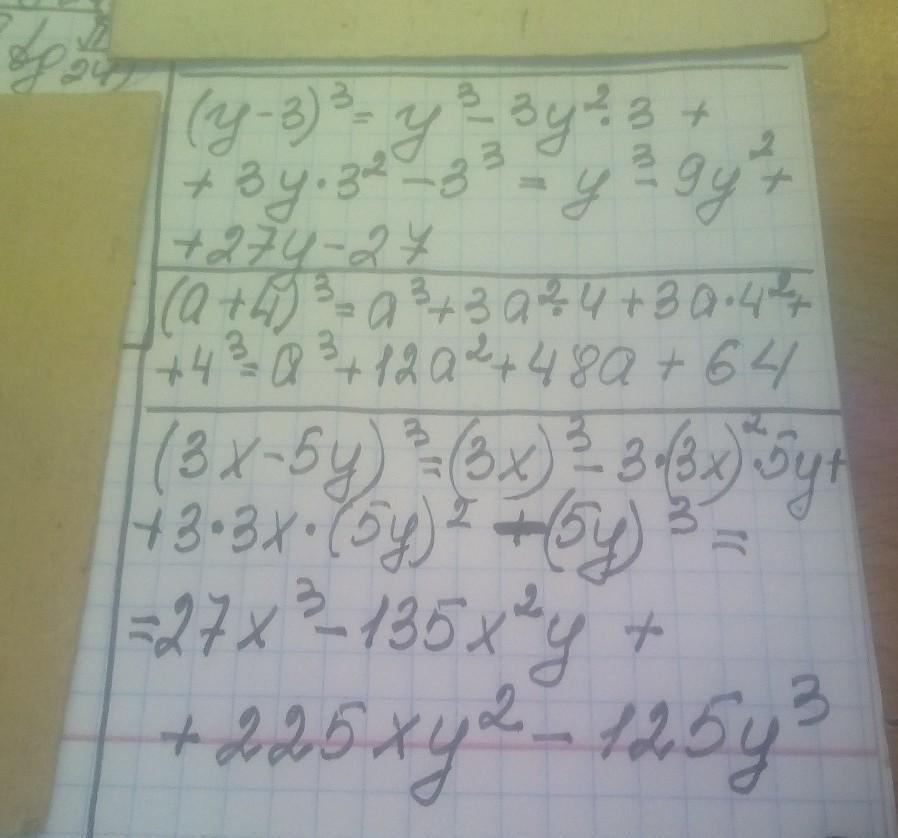 (y-3)³ = y³ - 3y²·3 +
+ 3y·3² - 3³ = y³ - 9y² +
+ 27y - 27
(a+4)³ = a³ + 3a²·4 + 3a·4² +
+ 4³ = a³ + 12a² + 48a + 64
(3x-5y)³ = (3x)³ - 3·(3x)²·5y +
+ 3·3x·(5y)² - (5y)³ =
= 27x³ - 135x²y +
+ 225xy² - 125y³